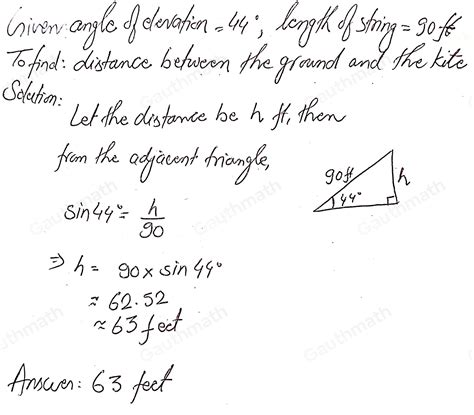 Given: angle of elevation = 44°, length of string = 90 ft
To find: distance between the ground and the kite
Solution:
Let the distance be h ft, then
from the adjacent triangle,
90ft
h
44°
sin44° = h/90
⇒ h = 90 x sin 44°
≈ 62.52
≈ 63 feet
Answer: 63 feet
Gauthmath
Gauthmath
Gauthmath
Gauthmath
Gauthmath
Gauthmath